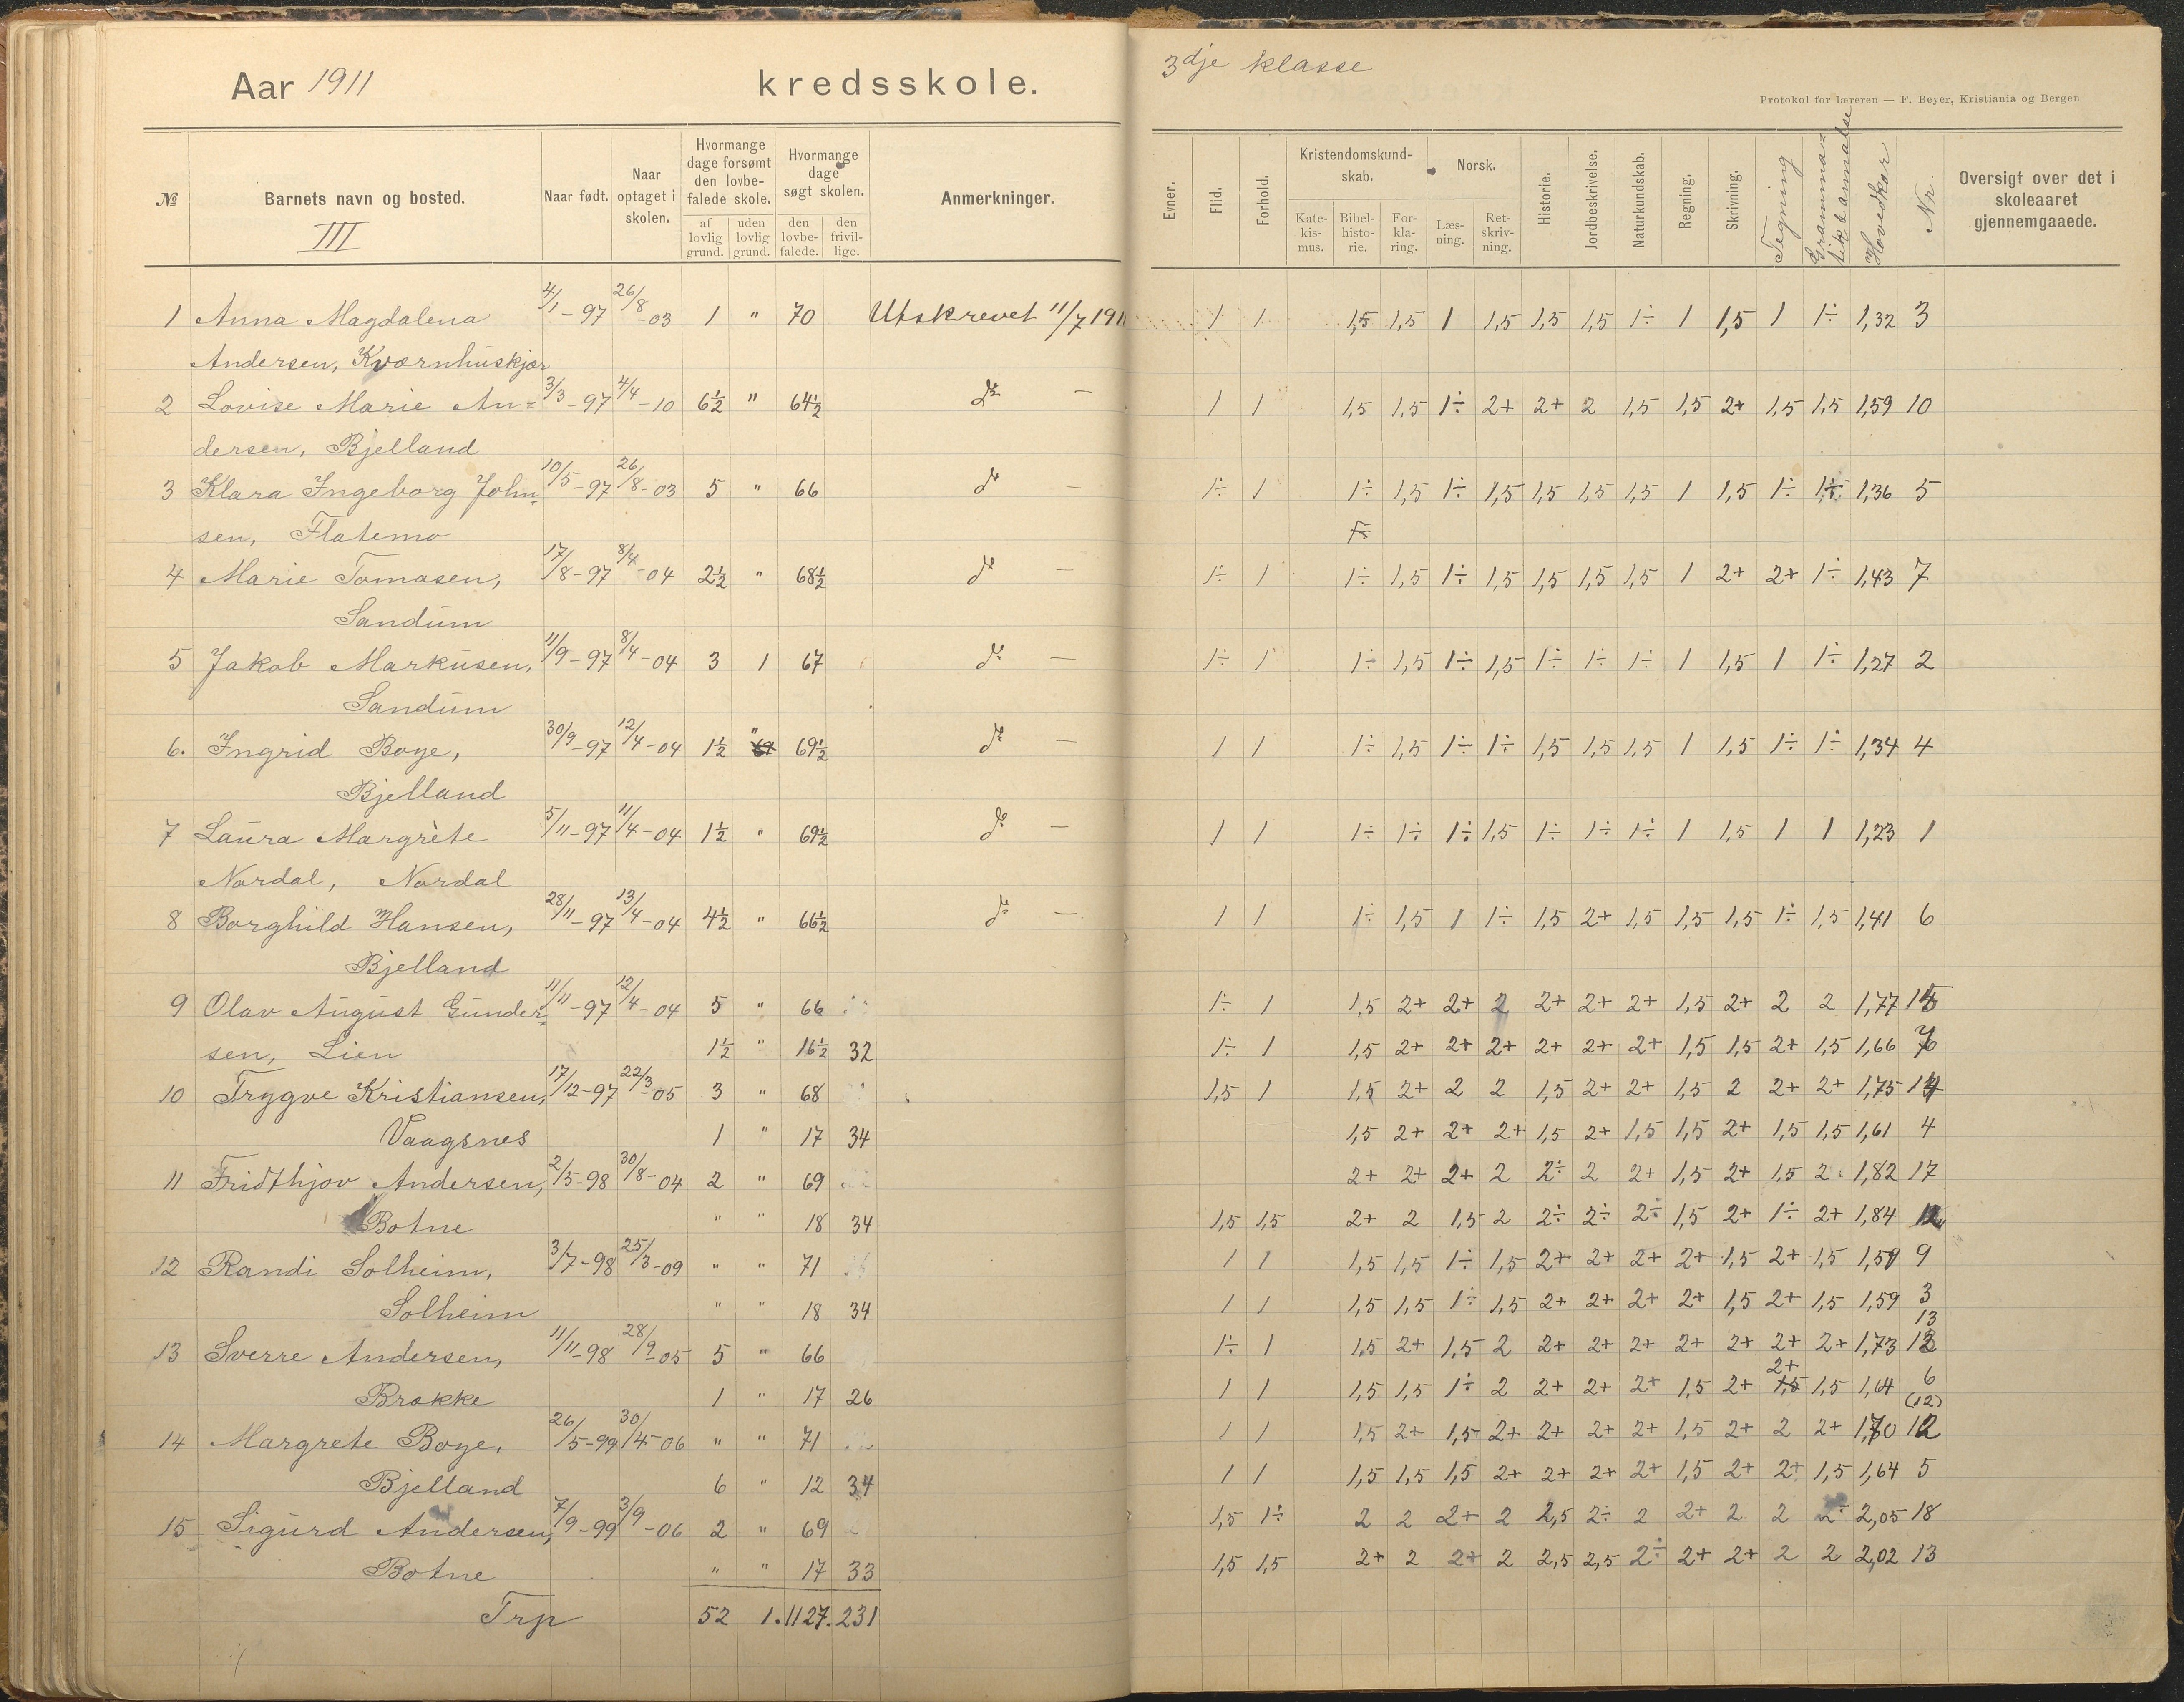 Aar 1911 kredsskole.
№ Barnets navn og bosted. Naar født. Naar optaget i skolen. Hvormange dage forsømt den lovbefalede skole. af lovlig grund. uden lovlig grund. Hvormange dage søgt skolen. den lovbefalede. den frivillige. Anmerkninger.
III
1 Anna Magdalena 4/1-97 26/8-03 1 " 70 Utskrevet 11/7 1911
Andersen, Kværnhuskjær
2 Lovise Marie An= 3/3-97 4/4-10 6½ " 64½ do —
dersen, Bjelland
3 Klara Ingeborg John= 10/5-97 26/8-03 5 " 66 do —
sen, Flatemo
4 Marie Tomasen, 17/8-97 8/4-04 2½ " 68½ do —
Sandum
5 Jakob Markusen, 11/9-97 8/4-04 3 1 67 do —
Sandum
6. Ingrid Boye, 30/9-97 12/4-04 1½ " 69½ do —
Bjelland
7 Laura Margrete 5/11-97 11/4-04 1½ " 69½ do —
Nordal, Nordal
8 Borghild Hansen, 28/11-97 13/4-04 4½ " 66½ do —
Bjelland
9 Olav August Gunder= 11/11-97 12/4-04 5 " 66
sen, Lien 1½ " 16½ 32
10 Trygve Kristiansen, 17/12-97 22/3-05 3 " 68
Vaagsnes 1 " 17 34
11 Fridthjov Andersen, 2/5-98 30/8-04 2 " 69
Botne " " 18 34
12 Randi Solheim, 3/7-98 25/3-09 " " 71
Solheim " " 18 34
13 Sverre Andersen, 11/11-98 28/9-05 5 " 66
Brække 1 " 17 26
14 Margrete Boye, 26/5-99 30/4-06 " " 71
Bjelland 6 " 12 34
15 Sigurd Andersen, 7/9-99 3/9-06 2 " 69
Botne " " 17 33
Trp 52 1. 1127. 231
3dje klasse
Protokol for læreren — F. Beyer, Kristiania og Bergen
Evner. Flid. Forhold. Kristendomskundskab. Katekismus. Bibelhistorie. Forklaring. Norsk. Læsning. Retskrivning. Historie. Jordbeskrivelse. Naturkundskab. Regning. Skrivning. Tegning Grammatik & annalse Hovedkar Nr. Oversigt over det i skoleaaret gjennemgaaede.
1 1 1,5 1,5 1 1,5 1,5 1,5 1÷ 1 1,5 1 1÷ 1,32 3
1 1 1,5 1,5 1÷ 2+ 2+ 2 1,5 1,5 2+ 1,5 1,5 1,59 10
1÷ 1 1÷ 1,5 1÷ 1,5 1,5 1,5 1,5 1 1,5 1÷ 1÷ 1,36 5
1÷ 1 1÷ 1,5 1÷ 1,5 1,5 1,5 1,5 1 2+ 2+ 1÷ 1,43 7
1÷ 1 1÷ 1,5 1÷ 1,5 1÷ 1÷ 1÷ 1 1,5 1 1÷ 1,27 2
1 1 1÷ 1,5 1÷ 1÷ 1,5 1,5 1,5 1 1,5 1÷ 1÷ 1,34 4
1 1 1÷ 1÷ 1÷ 1,5 1÷ 1÷ 1÷ 1 1,5 1 1 1,23 1
1 1 1÷ 1,5 1 1÷ 1,5 2+ 1,5 1,5 1,5 1÷ 1,5 1,41 6
1÷ 1 1,5 2+ 2+ 2 2+ 2+ 2+ 1,5 2+ 2 2 1,77 15
1÷ 1 1,5 2+ 2+ 2+ 2+ 2+ 2+ 1,5 1,5 2+ 1,5 1,66 7
1,5 1 1,5 2+ 2 2 1,5 2+ 2+ 1,5 2 2+ 2+ 1,75 14
1,5 2+ 2+ 2+ 1,5 2+ 1,5 1,5 2+ 1,5 1,5 1,61 4
2+ 2+ 2+ 2 2÷ 2 2+ 1,5 2+ 1,5 2 1,82 17
1,5 1,5 2+ 2 1,5 2 2÷ 2÷ 2÷ 1,5 2+ 1÷ 2+ 1,84 12
1 1 1,5 1,5 1÷ 1,5 2+ 2+ 2+ 2+ 1,5 2+ 1,5 1,59 9
1 1 1,5 1,5 1÷ 1,5 2+ 2+ 2+ 2+ 1,5 2+ 1,5 1,59 3
13
1÷ 1 1,5 2+ 1,5 2 2+ 2+ 2+ 2+ 2+ 2+ 2+ 1,73 13
1 1 1,5 1,5 1÷ 2 2+ 2+ 2+ 1,5 2+ 2+ 1,5 1,64 6
(12)
1 1 1,5 2+ 1,5 2+ 2+ 2+ 2+ 1,5 2+ 2 2+ 1,70 12
1 1 1,5 1,5 1,5 2+ 2+ 2+ 2+ 1,5 2+ 2+ 1,5 1,64 5
1,5 1÷ 2 2 2+ 2 2,5 2÷ 2 2+ 2 2 2÷ 2,05 18
1,5 1,5 2+ 2 2+ 2 2,5 2,5 2÷ 2+ 2+ 2 2 2,02 13